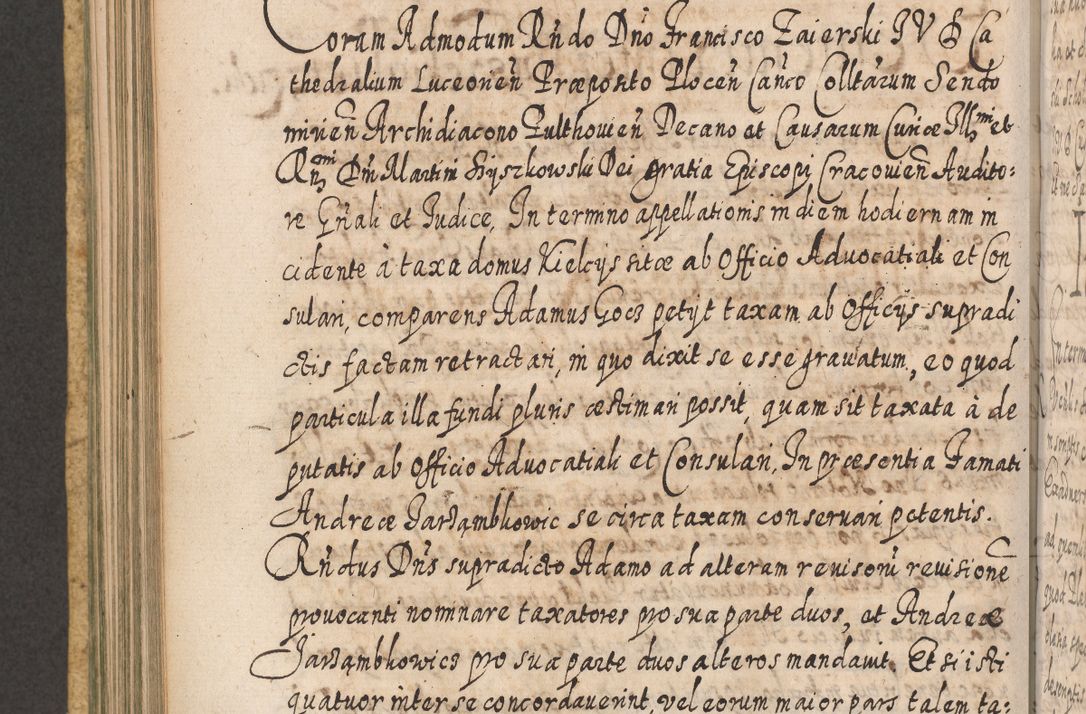 Coram Admodum Rńdo Dńo Francisco Zaierski IVD Ca
thedralium Luceorień Præposito Plocen̄ Canco Colltarum Sendo
mirien̄ Archidiacono Pulthovien̄ Decano et Causarum Curiæ Illmi et
Rmi Dn̄i Martini Szyszkowski Dei gratia Episcopi Cracovien̄ Audito:
re Gńali et Iudice, In termino appellationis in diem hodiernam in
cidente à taxa domus Kielcijs sitæ ab Officio Advocatiali et Con
sulari, comparens Adamus Gocz petijt taxam ab Officijs supradi
ctis factam retractari, in quo dixit se esse gravatum, eo quod
particula illa fundi pluris æstimari possit, quam sit taxata à de
putatis ab Officio Advocatiali et Consulari, In præsentia Famati
Andreæ Jarząmbkowic se circa taxam conservari petentis.
Rńdus Dńs supradicto Adamo ad alteram revisorū revisionē
provocanti nominare taxatores pro sua parte duos, et Andreæ
Jarząmbkowicz pro sua parte duos alteros mandavit. Et si isti
quatuor inter se concordaverint, vel eorum maior pars talem ta: